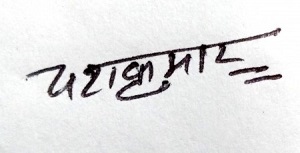 यशकुमार